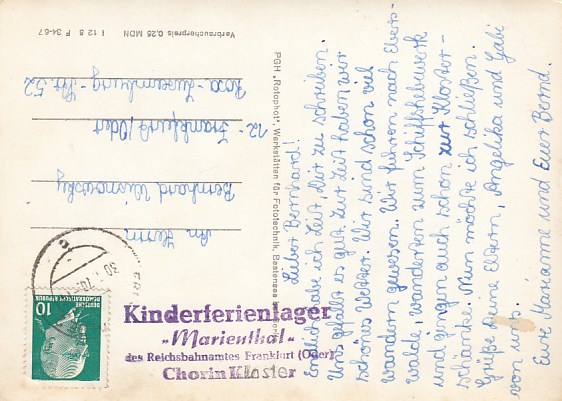 Lieber Bernhard!
Endlich habe ich Zeit, Dir zu schreiben.
Uns gefällt es gut. Zur Zeit haben wir
schönes Wetter. Wir sind schon viel
wandern gewesen. Wir fuhren nach Ebers-
walde, wanderten zum Schiffshebewerk
und gingen auch schon zur Kloster-
schänke. Nun möchte ich schließen.
Grüße deine Eltern, Angelika und Gabi
von uns.
Eure Marianne und Euer Bernd.
PGH „Rotophot“, Werkstätten für Fototechnik, Bestensee
Verbraucherpreis 0,25 MDN I 12 8 F 34-67
An Herrn
Bernhard Wisnowsky
12 Frankfurt/Oder
Rosa-Luxemburg-Str. 52
DEUTSCHE
DEMOKRATISCHE REPUBLIK
10
30.
Kinderferienlager
„Marienthal“
des Reichsbahnamtes Frankfurt (Oder)
Chorin Kloster